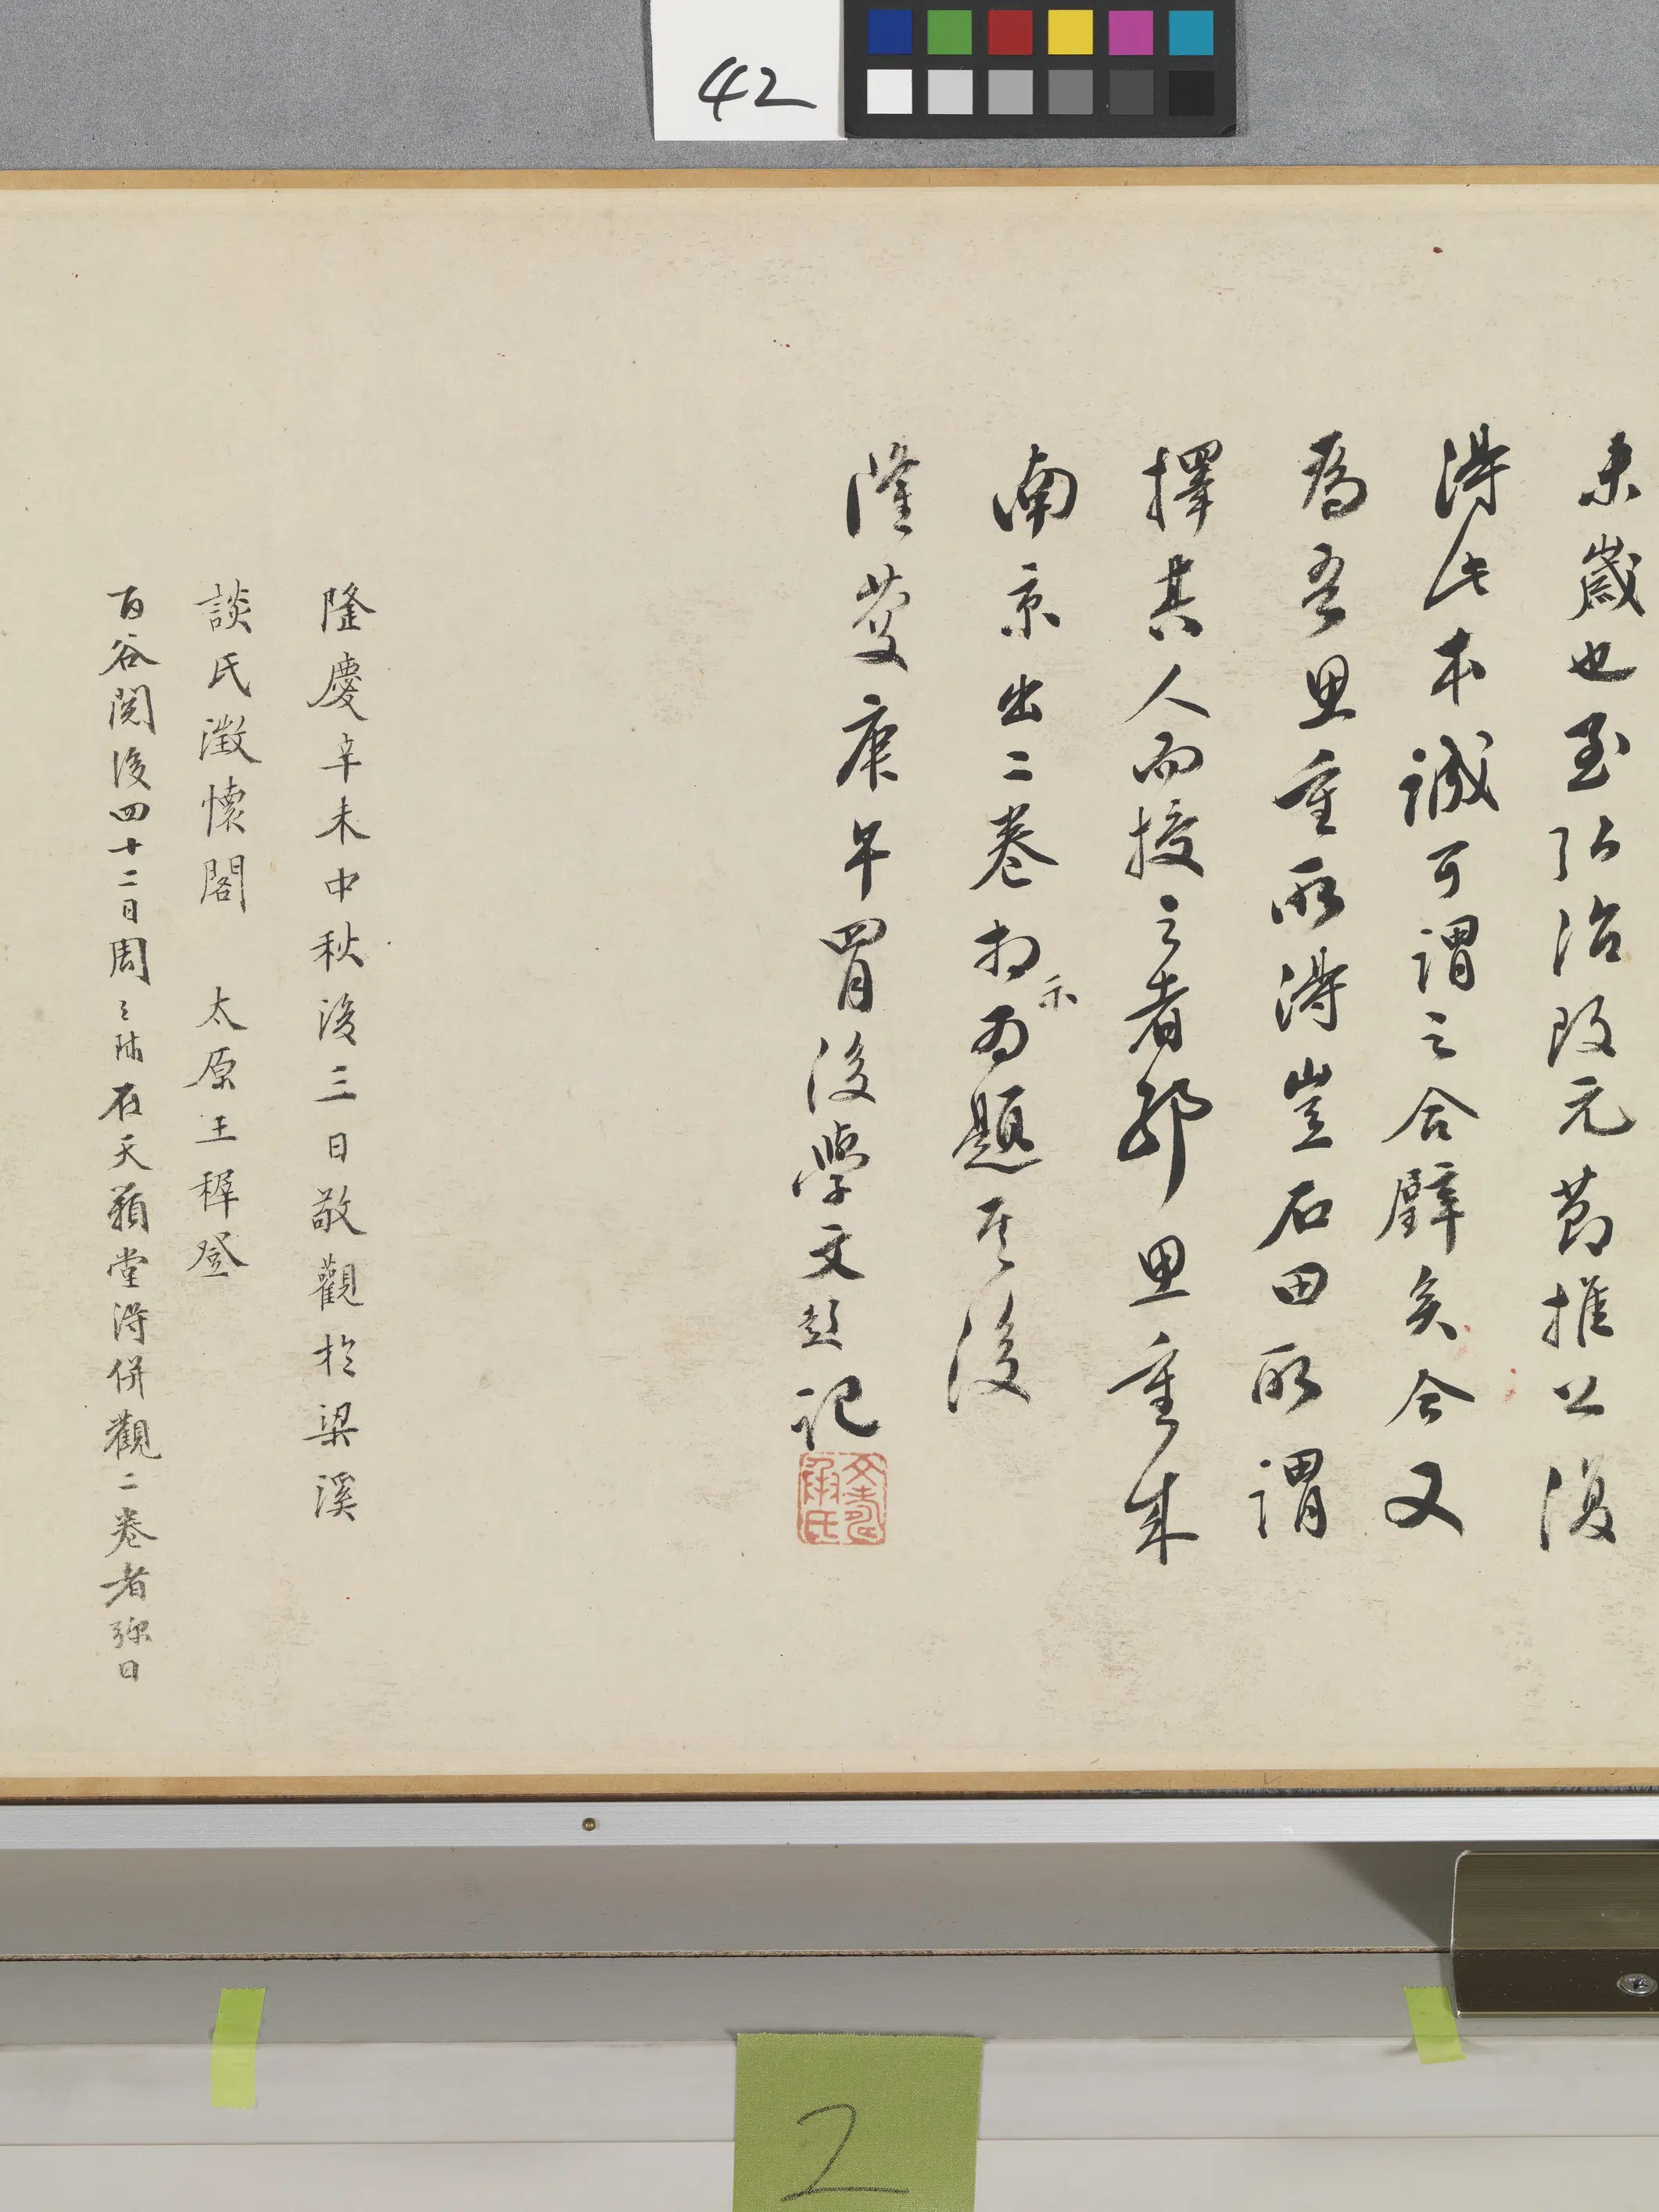 42
未歲也至弘治改元節推公復
得此本誠可謂之合璧矣今又
爲吾思重所得豈石田所謂
擇其人而授之者耶思重來
南京出二卷相示為題其後
隆慶庚午胃後學文彭記
文壽承氏
隆慶辛未中秋後三日敬觀於梁溪
談氏澂懷閣 太原王穉登
百谷閱後四十二日周之 在天籟堂得併觀二卷者弥日
2